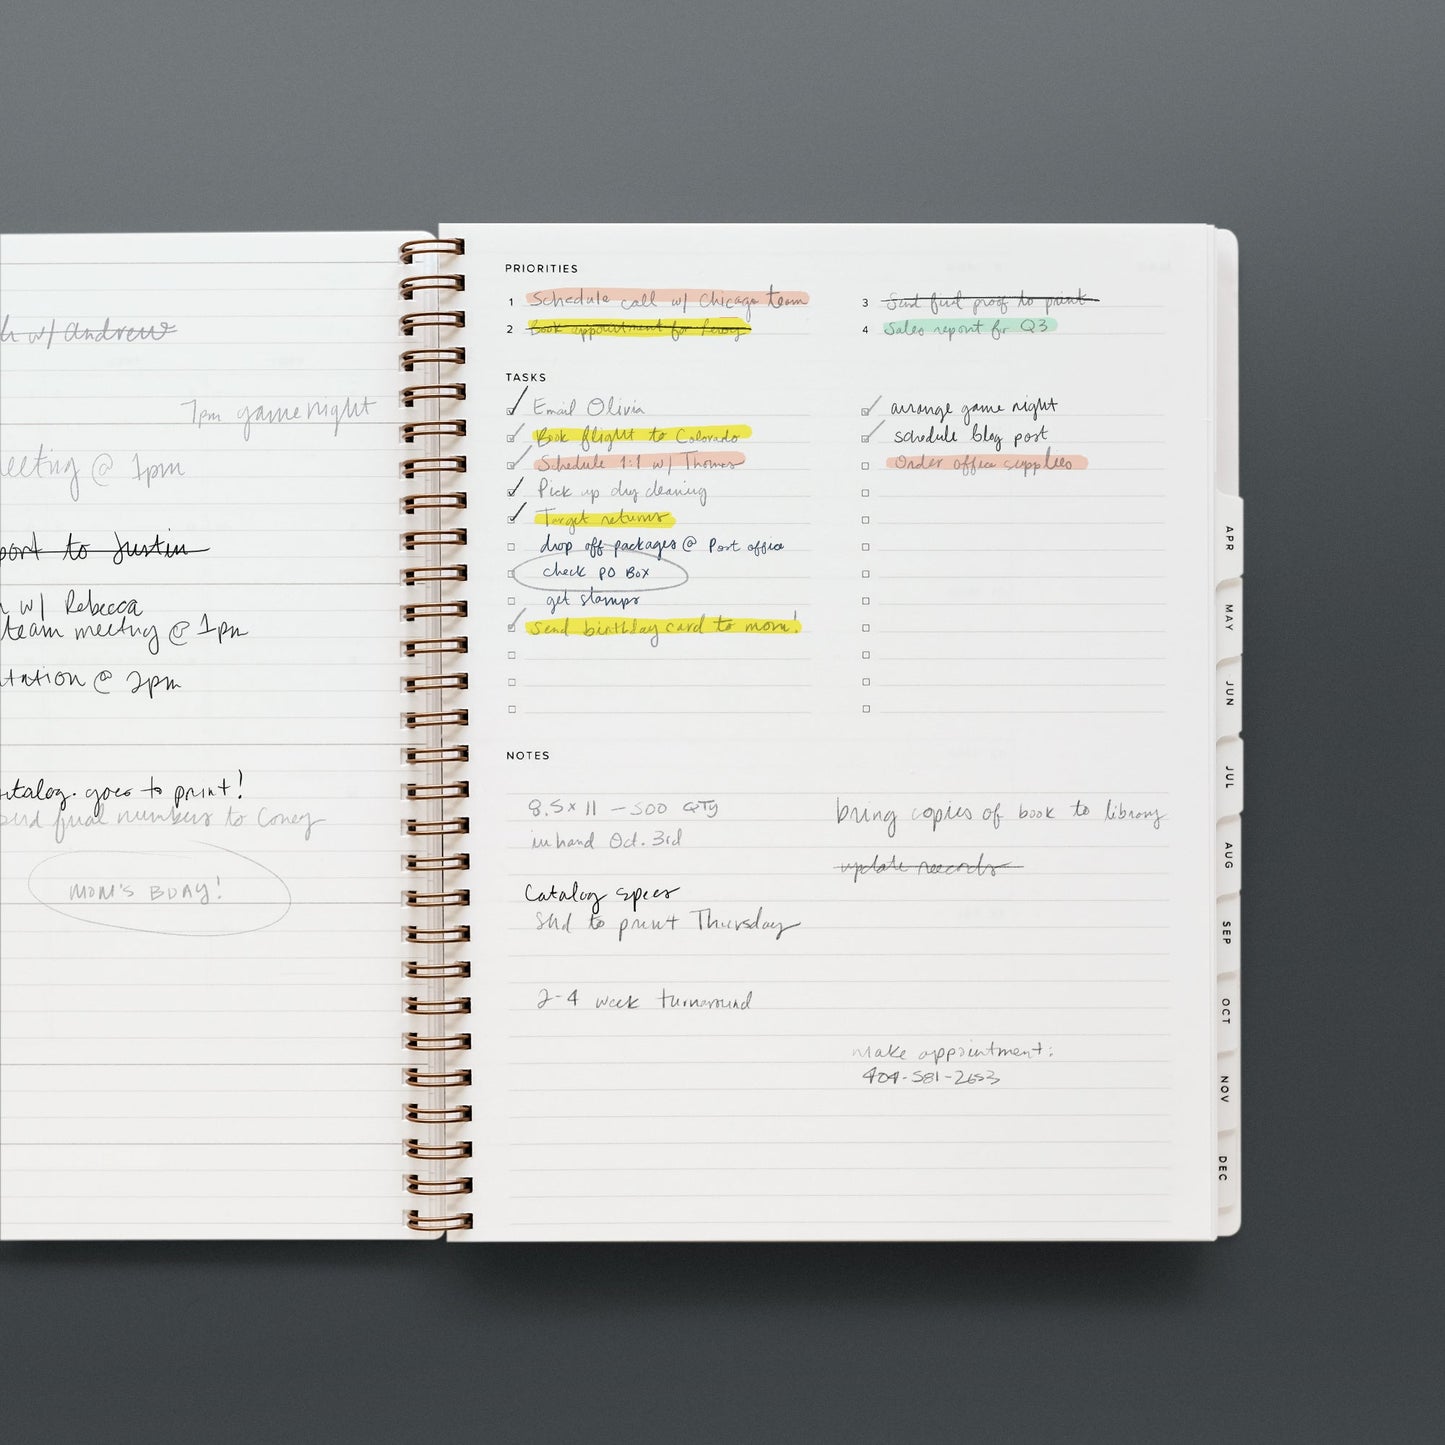 w/ Andrew
7pm game night
@ 1pm
to Justin
w/ Rebecca
team meeting @ 1pm
@ 2pm
goes to print!
final numbers to Corey
MOM'S BDAY!
PRIORITIES
1 Schedule call w/ Chicago team
2 Book appointment for
3 Send final proof to print
4 Sales report for Q3
TASKS
Email Olivia
Book flight to Colorado
Schedule 1:1 w/ Thomas
Pick up dry cleaning
Target returns
drop off packages @ Post office
check PO Box
get stamps
Send birthday card to mom!
arrange game night
schedule blog post
Order office supplies
NOTES
8.5 x 11 - 500 QTY
in hand Oct. 3rd
Catalog specs
Send to print Thursday
2-4 week turnaround
bring copies of book to library
update records
make appointment:
404-581-2653
APR
MAY
JUN
JUL
AUG
SEP
OCT
NOV
DEC